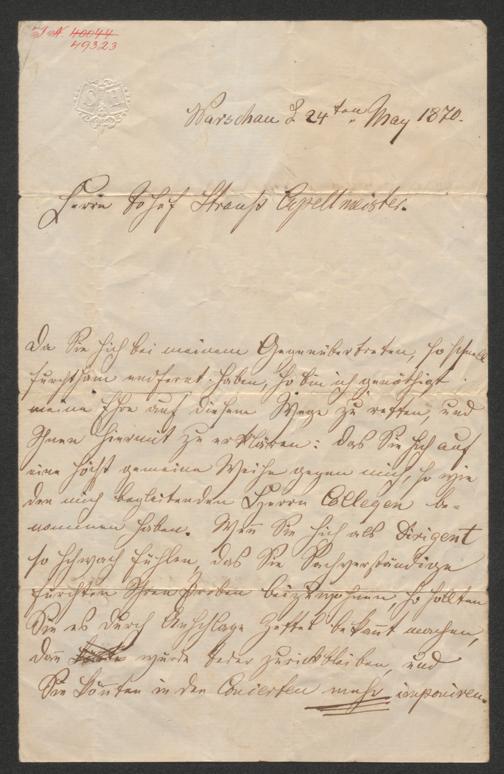 I. N. 40044
49323
Warschau d 24ten May 1870.
Herrn Josef Strauß Capellmeister.
Da Sie sich bei meinem Gegenübertreten, so schnell
furchtsam entfernt haben, so bin ich genöthigt
meine Ehre auf diesem Wege zu retten, und
Ihnen hiermit zu erklären: das Sie sich auf
eine höchst gemeine Weise gegen mich, so wie
den mich begleitenden Herrn Collegen be-
nommen haben. Wenn Sie sich als Dirigent
so schwach fühlen, das Sie Sachverständige
fürchten Ihren Proben beizuwohnen, so sollten
Sie es durch Anschlage Zettel bekannt machen,
dann würde jeder zurückbleiben, und
Sie könten in den Concerten mehr imponiren.